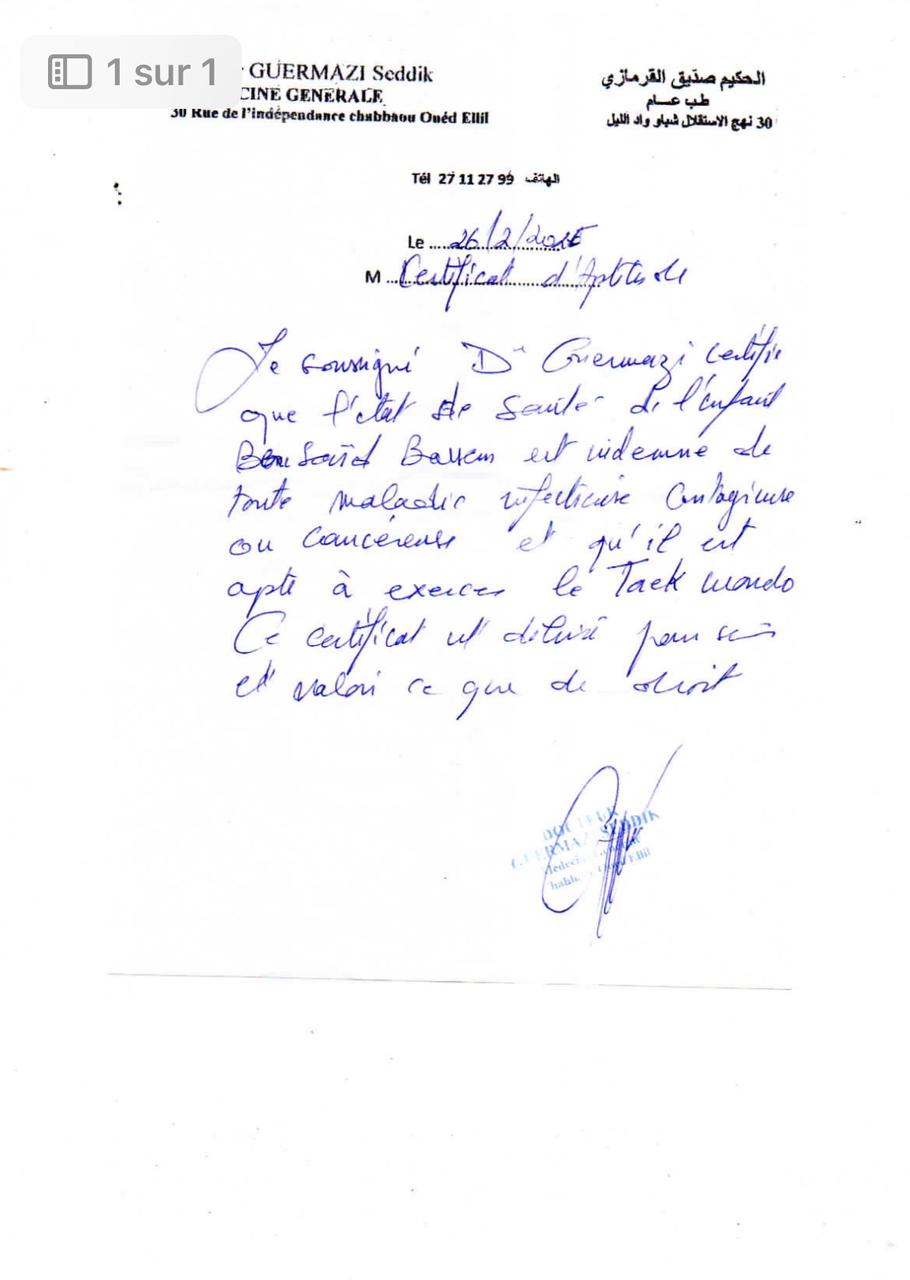 1 sur 1
GUERMAZI Seddik
CINE GENERALE
30 Rue de l'indépendance chabbaou Ouéd Ellil
الحكيم صدّيق القرمازي
طب عـــام
30 نهج الاستقلال شباو واد الليل
Tél 27 11 27 99 الهاتف
Le 26/2/
M Certificat d'Aptitude
Je soussigné Dr Guermazi certifie
que l'état de Santé de l'enfant
Ben Saïd Bassem est indemne de
toute maladie infectieuse Contagieuse
ou Cancéreuse et qu'il est
apte à exercer le Taekwondo
Ce certificat est délivré pour
et valoir ce que de droit
DOCTEUR
GUERMAZI SEDDIK